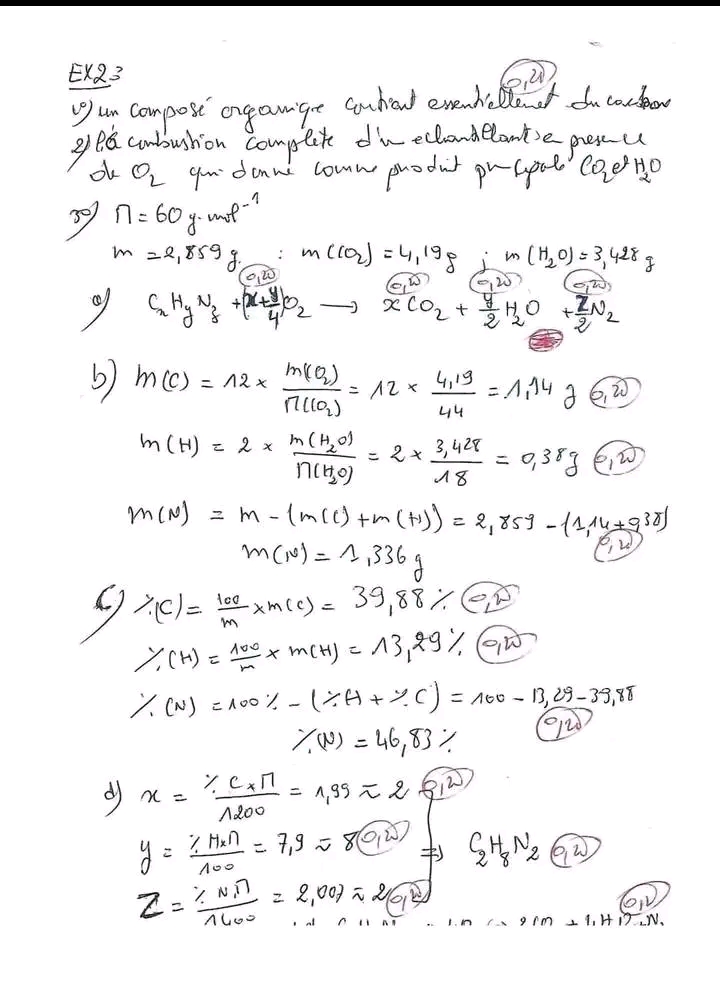 EX23
0,25
1°) un composé organique contient essentiellement du carbone
2°) la combustion complete d'un echantillant en presence
de O2 qui donne comme produit principale CO2 et H2O
3°) M = 60 g.mol⁻¹
m = 2,859 g. : m(CO2) = 4,19 g ; m(H2O) = 3,428 g
0,25 0,25 0,25 0,25
a) CxHyNz + (x+y/4)O2 → xCO2 + y/2 H2O + z/2 N2
b) m(C) = 12 × m(CO2)/M(CO2) = 12 × 4,19/44 = 1,14 g 0,25
m(H) = 2 × m(H2O)/M(H2O) = 2 × 3,428/18 = 0,38 g 0,25
m(N) = m - (m(C) + m(H)) = 2,859 - (1,14 + 0,38)
m(N) = 1,336 g 0,25
c) %(C) = 100/m × m(C) = 39,88 % 0,25
%(H) = 100/m × m(H) = 13,29 % 0,25
%(N) = 100 % - (%H + %C) = 100 - 13,29 - 39,88
%(N) = 46,83 % 0,25
d) x = %C×M/1200 = 1,99 ≈ 2 0,25
y = %H×M/100 = 7,9 ≈ 8 0,25 ⇒ C2H8N2 0,25
z = %N.M/1400 = 2,007 ≈ 2 0,25
0,25